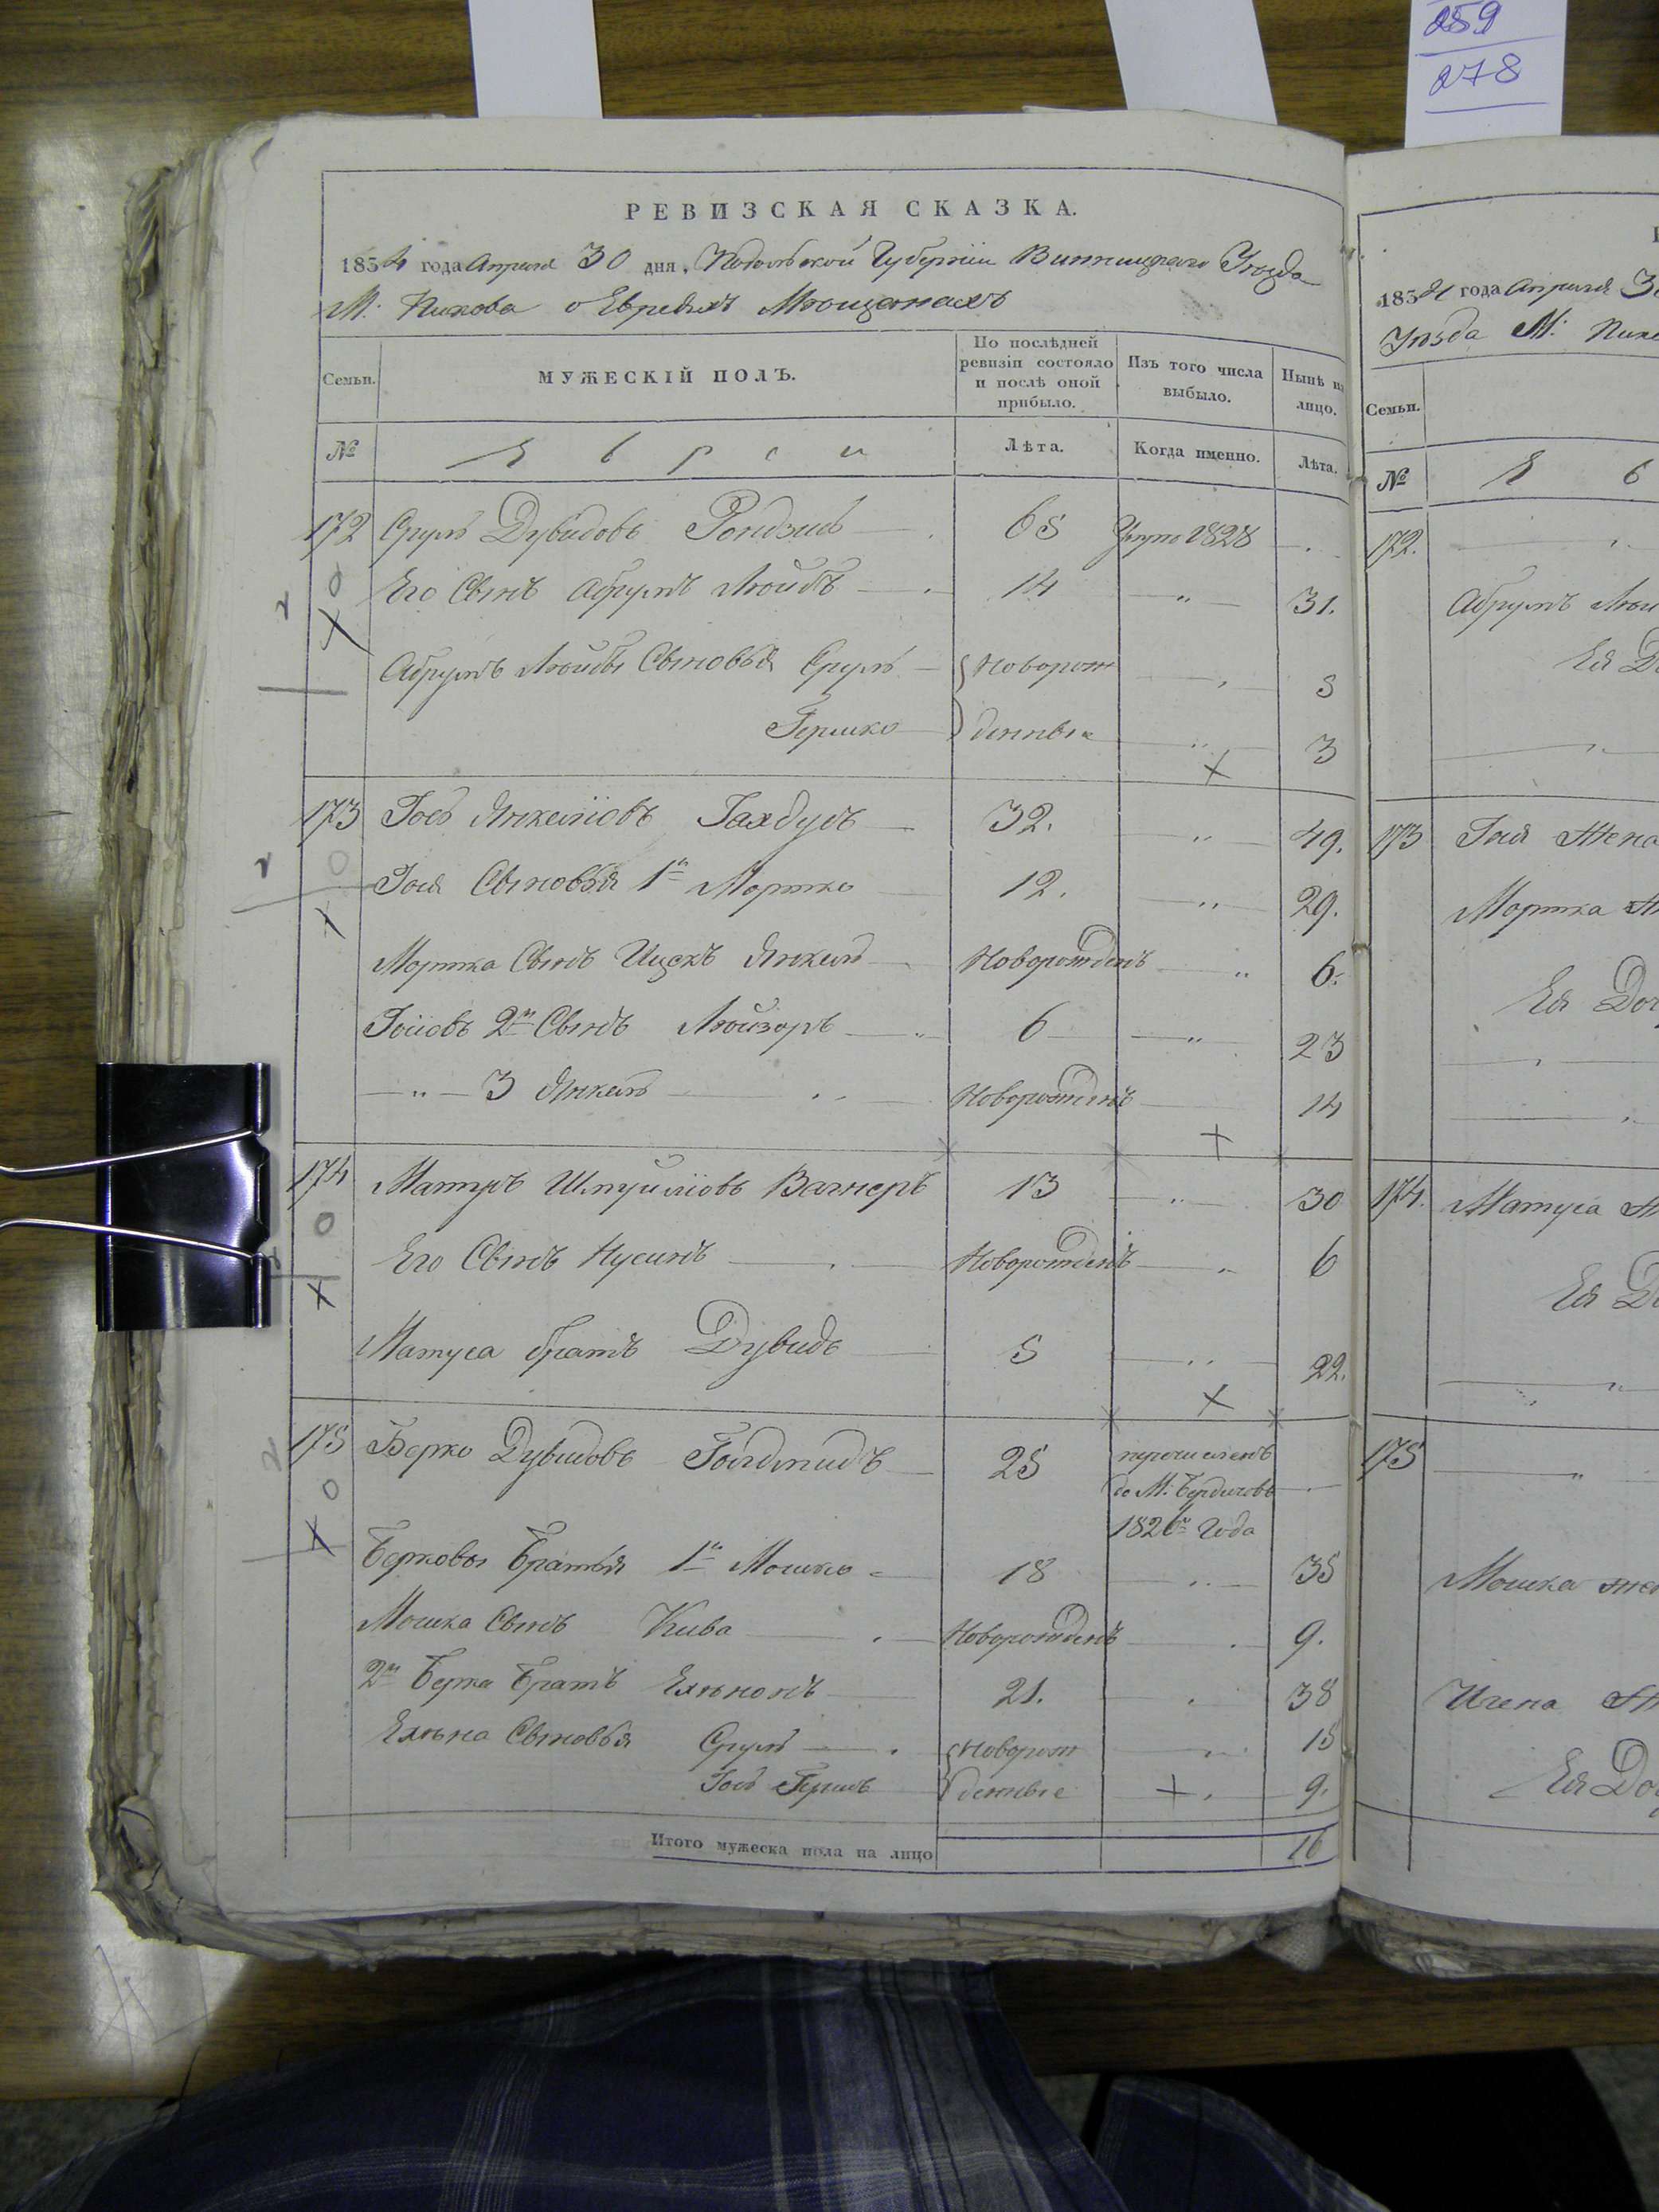 259
278
РЕВИЗСКАЯ СКАЗКА.
1854 года Апреля 30 дня, Подольской Губернiи Винницкаго Уѣзда
М: Пикова о Евреяхъ Мѣщанахъ
Семьи.
МУЖЕСКIЙ ПОЛЪ.
По послѣдней ревизiи состояло и послѣ оной прибыло.
Изъ того числа выбыло.
Нынѣ на лицо.
№ Евреи Лѣта. Когда именно. Лѣта.
172 Сруль Дувидовъ 65 1828
Его Сынъ Абрумъ Лейбъ 14 " 31.
Абрумъ Лейбы Сыновья Сруль Новорож 5
Гершко денные " 3
173 Iось Янкелiовъ 32. " 49.
Iося Сыновья 1й Мортко 12. " 29.
Мортка Сынъ Ицекъ Янкель Новорожденъ " 6.
Iосiовъ 2й Сынъ Лейзоръ 6 " 23
" 3 Янкель Новорожденъ 14
174 Матусъ Шмуйлiовъ Вагнеръ 13 " 30
Его Сынъ Нусинъ Новорожденъ " 6
Матуса братъ Дувидъ 5 " 22.
175 Берко Дувидовъ 25 перечисленъ
до М: Бердичовъ
1826го Года
Берковы Братья 1й Мошко 18 " 35
Мошка Сынъ Кива Новорожденъ 9.
2й Берка Братъ 21. 38
Сыновья Сруль Новорож " 15
Iось денные 9.
Итого мужеска пола на лицо 16
1854 года Апреля 30
Уѣзда М:
Семьи.
№ Е в
172.
Абрумъ
Ея
173 Жена
Мортка
Ея Доч
174. Матуса
Ея
175 "
Мошка жен
Ея Доч